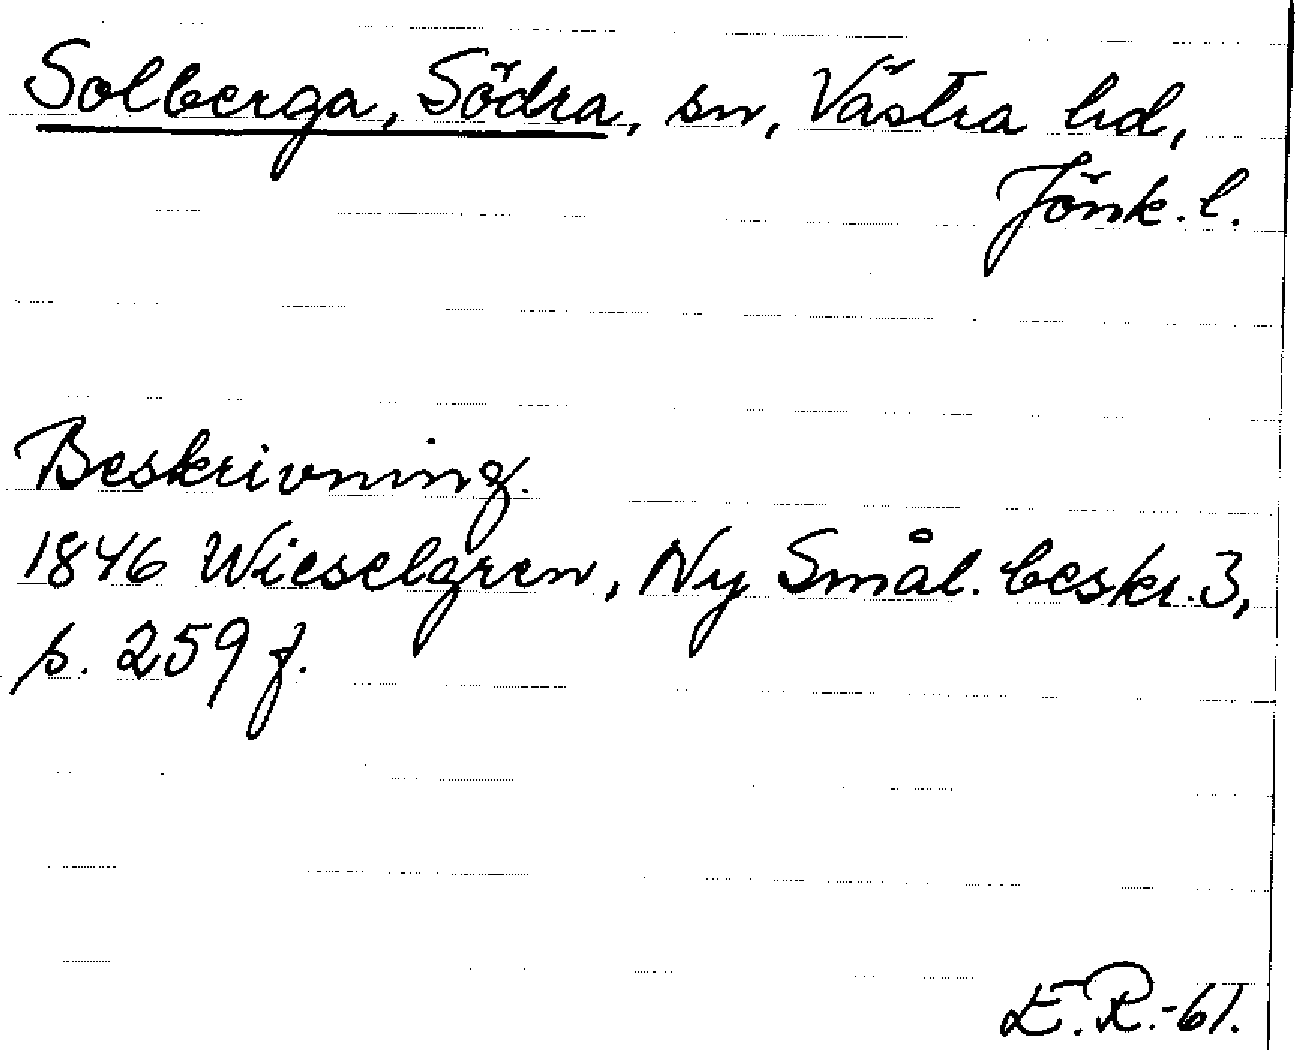 Solberga, Södra, sn, Västra hd,
Jönk. l.
Beskrivning.
1846 Wieselgren, Ny Smål. beskr. 3,
s. 259 f.
E.R.-61.